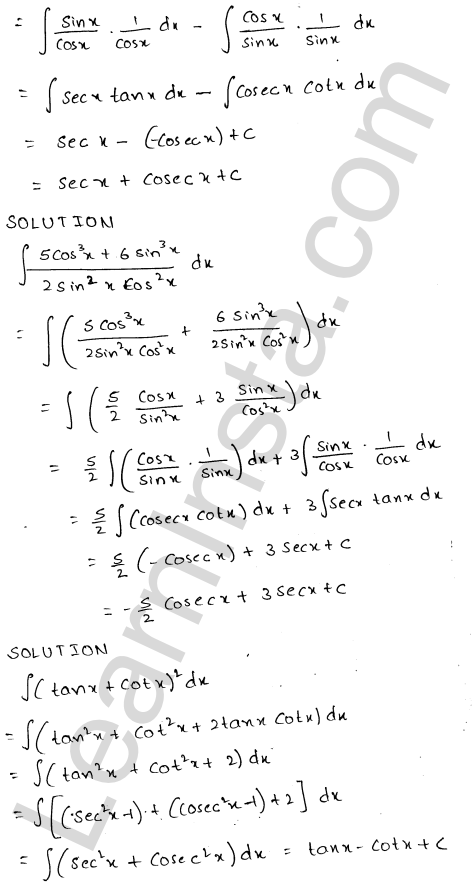 = ∫ sinx/cosx · 1/cosx dx − ∫ cosx/sinx · 1/sinx dx
= ∫ secx tanx dx − ∫ cosecx cotx dx
= sec x − (−cosecx) + c
= secx + cosecx + c
SOLUTION
∫ (5cos³x + 6 sin³x)/(2 sin² x cos²x) dx
= ∫ ( 5 cos³x/(2sin²x cos²x) + 6 sin³x/(2sin²x cos²x) ) dx
= ∫ ( 5/2 cosx/sin²x + 3 sinx/cos²x ) dx
= 5/2 ∫ ( cosx/sinx · 1/sinx ) dx + 3 ∫ sinx/cosx · 1/cosx dx
= 5/2 ∫ (cosecx cotx) dx + 3 ∫ secx tanx dx
= 5/2 (− cosecx) + 3 secx + c
= − 5/2 cosecx + 3 secx + c
SOLUTION
∫ (tanx + cotx)² dx
= ∫ (tan²x + cot²x + 2tanx cotx) dx
= ∫ (tan²x + cot²x + 2) dx
= ∫ [(sec²x−1) + (cosec²x−1) + 2] dx
= ∫ (sec²x + cosec²x) dx = tanx − cotx + c
LearnInsta.com